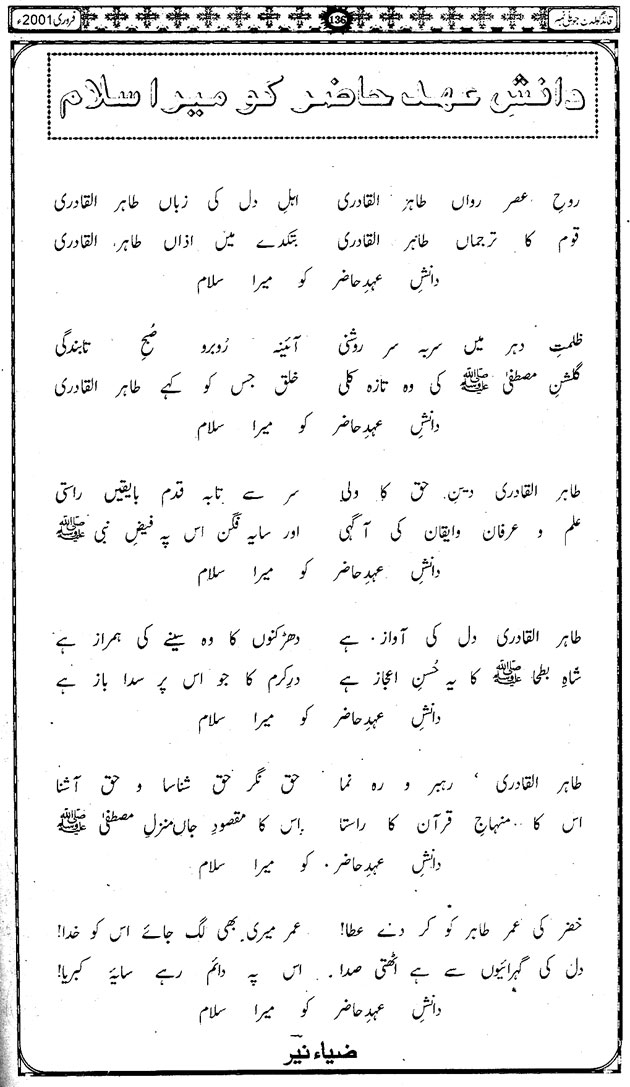 قائد گولڈن جوبلی نمبر 136 فروری 2001ء
دانشِ عہد حاضر کو میرا سلام
روحِ عصر رواں طاہر القادری اہلِ دل کی زباں طاہر القادری
قوم کا ترجماں طاہر القادری بتکدے میں اذاں طاہر القادری
دانشِ عہدِ حاضر کو میرا سلام
ظلمتِ دہر میں سربہ سر روشنی آئینہ رُوبرو صُبحِ تابندگی
گلشنِ مصطفیٰ ﷺ کی وہ تازہ کلی خلق جس کو کہے طاہر القادری
دانشِ عہدِ حاضر کو میرا سلام
طاہر القادری دینِ حق کا ولی سر سے تابہ قدم بایقیں راستی
علم و عرفان وایقان کی آگہی اور سایہ فگن اس پہ فیضِ نبی ﷺ
دانشِ عہدِ حاضر کو میرا سلام
طاہر القادری دل کی آواز ہے دھڑکنوں کا وہ سینے کی ہمراز ہے
شاہِ بطحا ﷺ کا یہ حُسنِ اعجاز ہے درِکرم کا جو اس پر سدا باز ہے
دانشِ عہدِ حاضر کو میرا سلام
طاہر القادری ، رہبر و رہ نما حق نگر حق شناسا و حق آشنا
اس کا منہاجِ قرآن کا راستا اس کا مقصودِ جاں منزلِ مصطفیٰ ﷺ
دانشِ عہدِ حاضر کو میرا سلام
خضر کی عمر طاہر کو کر دے عطا! عمر میری بھی لگ جائے اس کو خدا!
دل کی گہرائیوں سے ہے اٹھتی صدا اس پہ دائم رہے سایۂ کبریا!
دانشِ عہدِ حاضر کو میرا سلام
ضیاء نیر